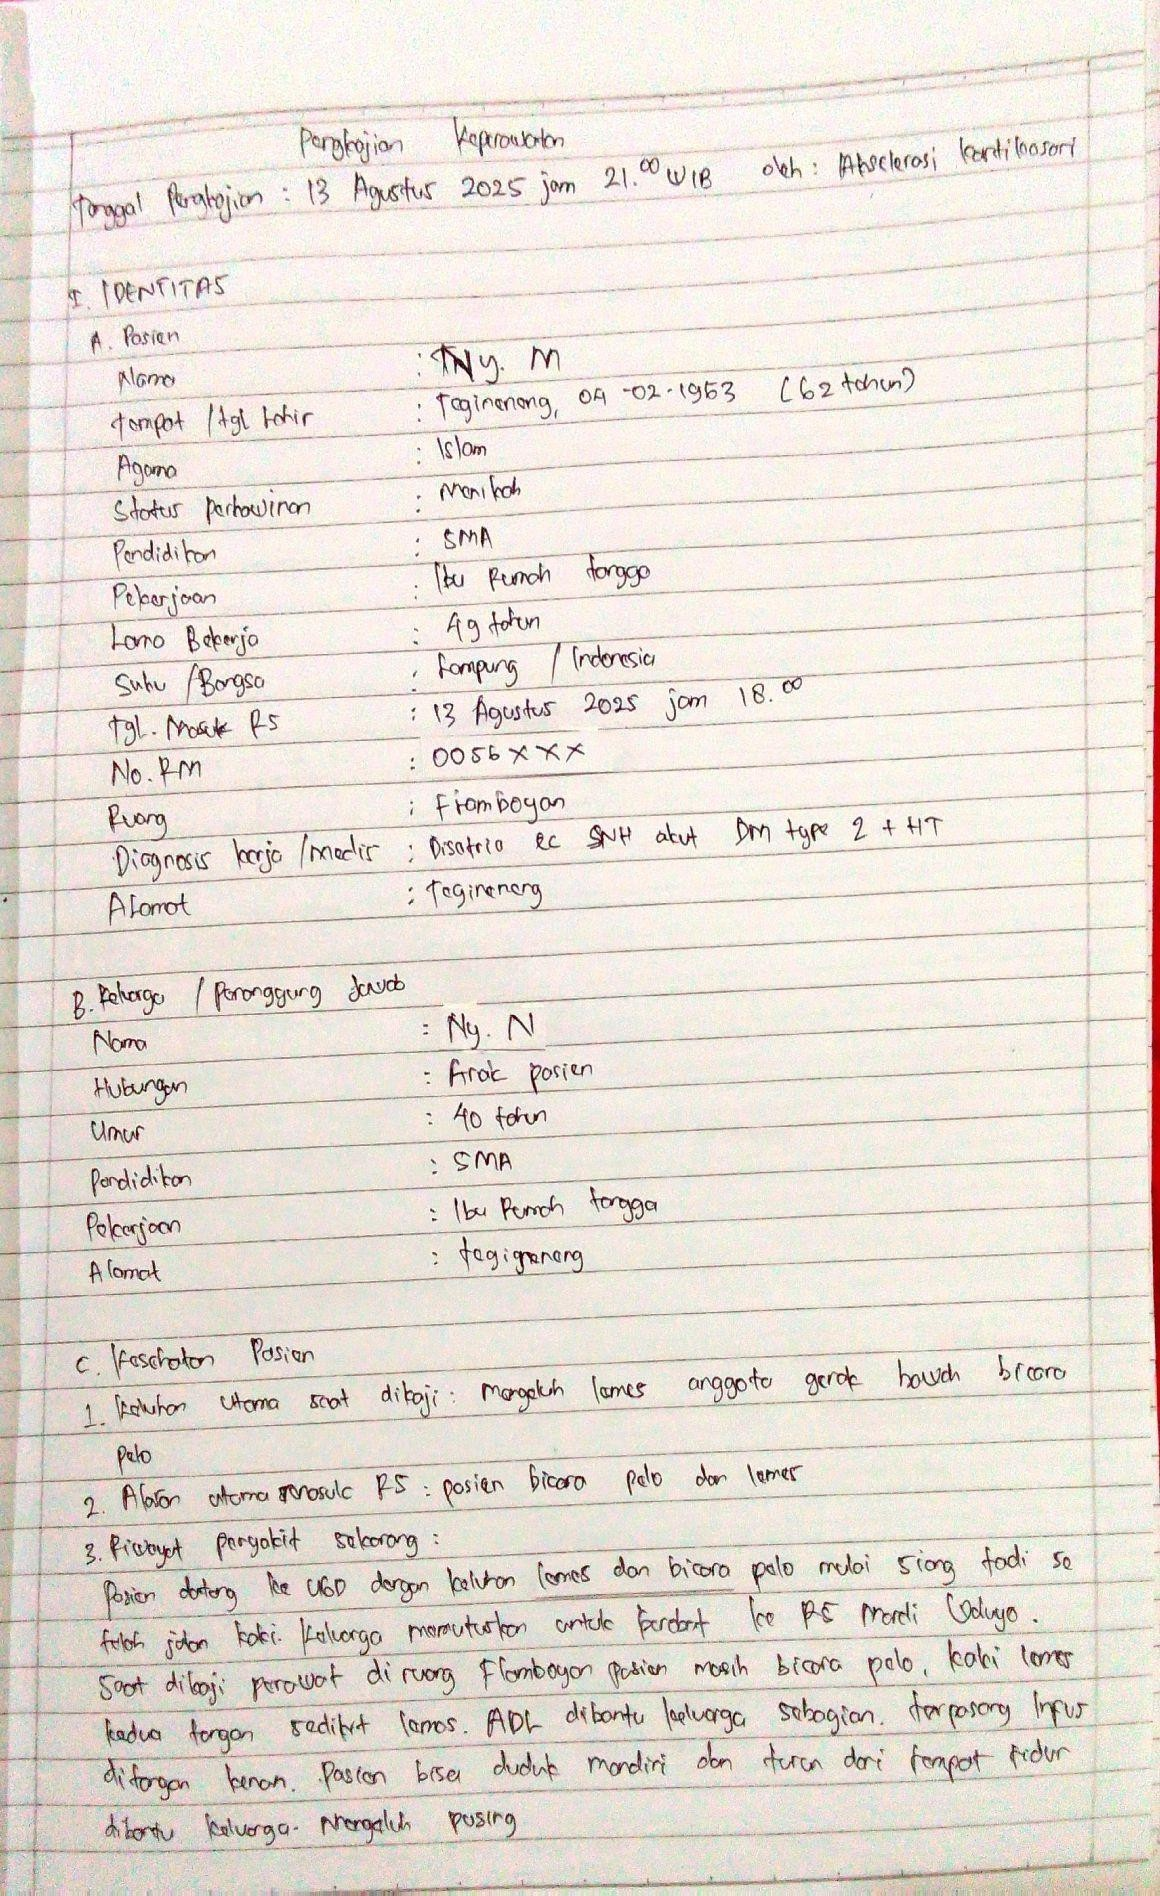 Pengkajian Keperawatan
Tanggal Pengkajian : 13 Agustus 2025 jam 21.00 WIB oleh : Akselerasi Kantilaasari
I. IDENTITAS
A. Pasien
Nama : Ny. M
Tempat / tgl lahir : Tegineneng, 04-02-1963 (62 tahun)
Agama : Islam
Status Perkawinan : Menikah
Pendidikan : SMA
Pekerjaan : Ibu Rumah tangga
Lama Bekerja : 49 tahun
Suku / Bangsa : Lampung / Indonesia
Tgl. Masuk RS : 13 Agustus 2025 jam 18.00
No. RM : 0056XXX
Ruang : Flamboyan
Diagnosis kerja / medis : Disatria ec SNH akut DM type 2 + HT
Alamat : Tegineneng
B. Keluarga / Penanggung Jawab
Nama : Ny. N
Hubungan : Anak pasien
Umur : 40 tahun
Pendidikan : SMA
Pekerjaan : Ibu Rumah tangga
Alamat : Tegigneneng
C. Kesehatan Pasien
1. Keluhan Utama saat dikaji : Mengeluh lemes anggota gerak bawah bicara
pelo
2. Alasan utama masuk RS : pasien bicara pelo dan lemes
3. Riwayat penyakit sekarang :
Pasien datang ke UGD dengan keluhan lemes dan bicara pelo mulai siang tadi se
telah jalan kaki. Keluarga memutuskan untuk berobat ke RS Mardi Waluyo.
Saat dikaji perawat di ruang Flamboyan pasien masih bicara pelo, kaki lemes
kedua tangan sedikit lemes. ADL dibantu keluarga sebagian. terpasang Infus
ditangan kanan. Pasien bisa duduk mandiri dan turun dari tempat tidur
dibantu keluarga. Mengeluh pusing